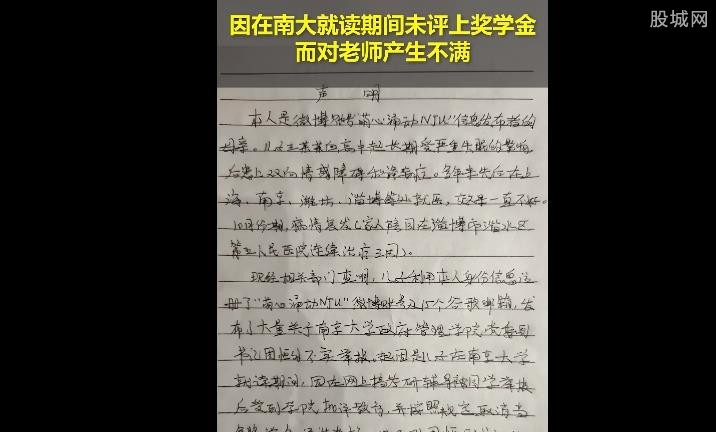 因在南大就读期间未评上奖学金
而对老师产生不满
股城网
声 明
本人是微博账号"萌心涌动NJU"信息发布者的
母亲。儿子王某某从高中起长期受严重失眠的影响
后患上双向情感障碍和
症。多年来先后在上
海、南京、潍坊、淄博等地就医,效果一直不好。
10月份期,病情复发(家人陪同在淄博市淄水区
第三人民医院连续治疗三周)。
现经相关部门查明,儿子利用本人身份信息注
册了"萌心涌动NJU"微博账号及15个谷歌邮箱,发
布了大量关于南京大学政府管理学院党委副
书记
不实举报。起因是儿子在南京大学
就读期间,因在网上搞考研辅导被同学举报
后受到学院批评教育,并按照规定取消当